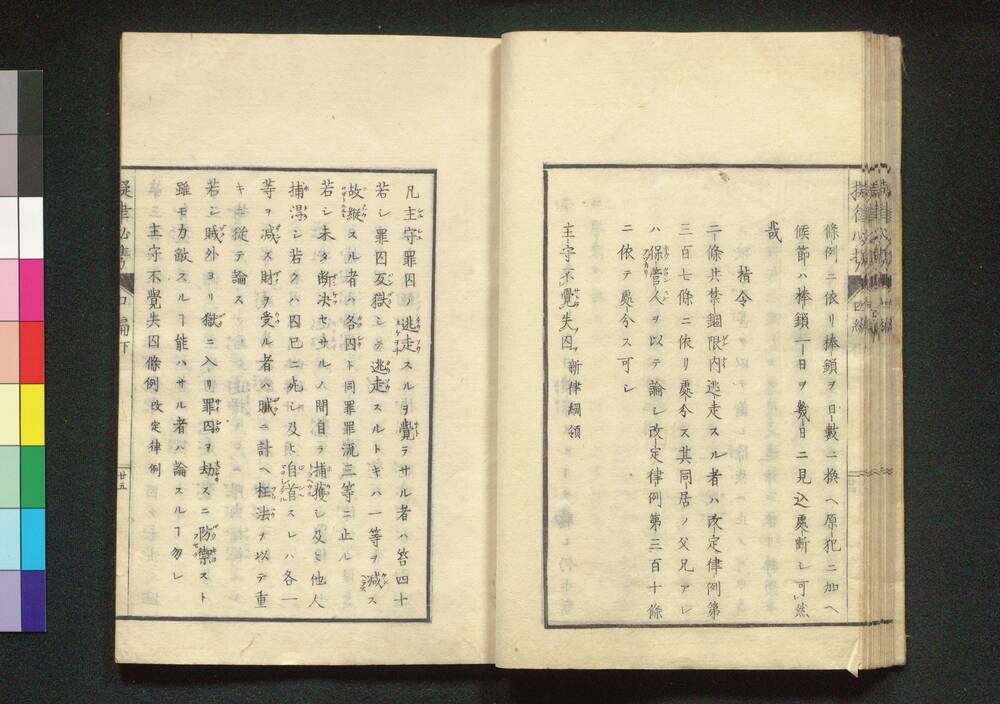 條例ニ依リ棒鎖ヲ日數ニ換ヘ原犯ニ加ヘ
候節ハ棒鎖一日ヲ幾日ニ見込處斷シ可然
哉
指令
二條共禁錮限内逃走スル者ハ改定律例第
三百七條ニ依リ處分ス其同居ノ父兄アレ
ハ保管人ヲ以テ論シ改定律例第三百十條
ニ依テ處分ス可シ
主守不覺失囚 新律綱領
凡主守罪囚逃走スルヲ覺ヲサル者ハ笞四十
若シ罪囚反獄シテ逃走スルトキハ一等ヲ減ス
故縱スル者ハ各囚ト同罪罪流三等ニ止ル
若シ未タ斷决セサルノ間自ラ捕獲シ及ヒ他人
捕得シ若クハ囚已ニ死シ及ヒ自首スレハ各一
等ヲ減ス財ヲ受ル者ハ贓ニ計ヘ枉法ヲ以テ重
キ從テ論ス
若シ賊外ヨリ獄ニ入リ罪囚ヲ劫スニ防禦スト
雖モ力敵スルヿ能ハサル者ハ論スルヿ勿レ
主守不覺失囚條例 改定律例
廿五